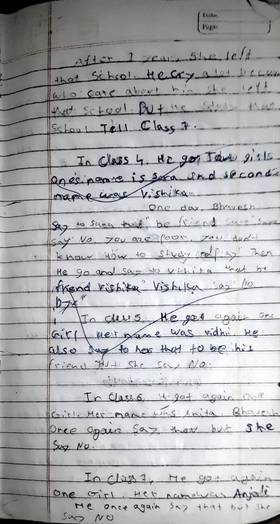 Date:
Page:
After 1 year, She left
that School. He cry a lot becaus
who care about him she left
that School. But he study that
School Till Class 7.
In Class 4. He got Two girls
one's name is Sara and second
name was Vishika
one day Bhavesh
Say to Sara that be friend Sara
Say No. You are poor you don't
know How to study Then
He go and Say to Vishika that be
friend Vishika" Vishika Say No
In Class 5. He got again one
Girl. Her name was vidhi He
also Say to her that to be his
friend but she Say No.
In Class 6. it got again one
Girl. Her name was Anita Bhavesh
Once again Say that but She
Say No.
In Class 7, He got again
one Girl. Her name was Anjali
He once again Say that but She
Say NO